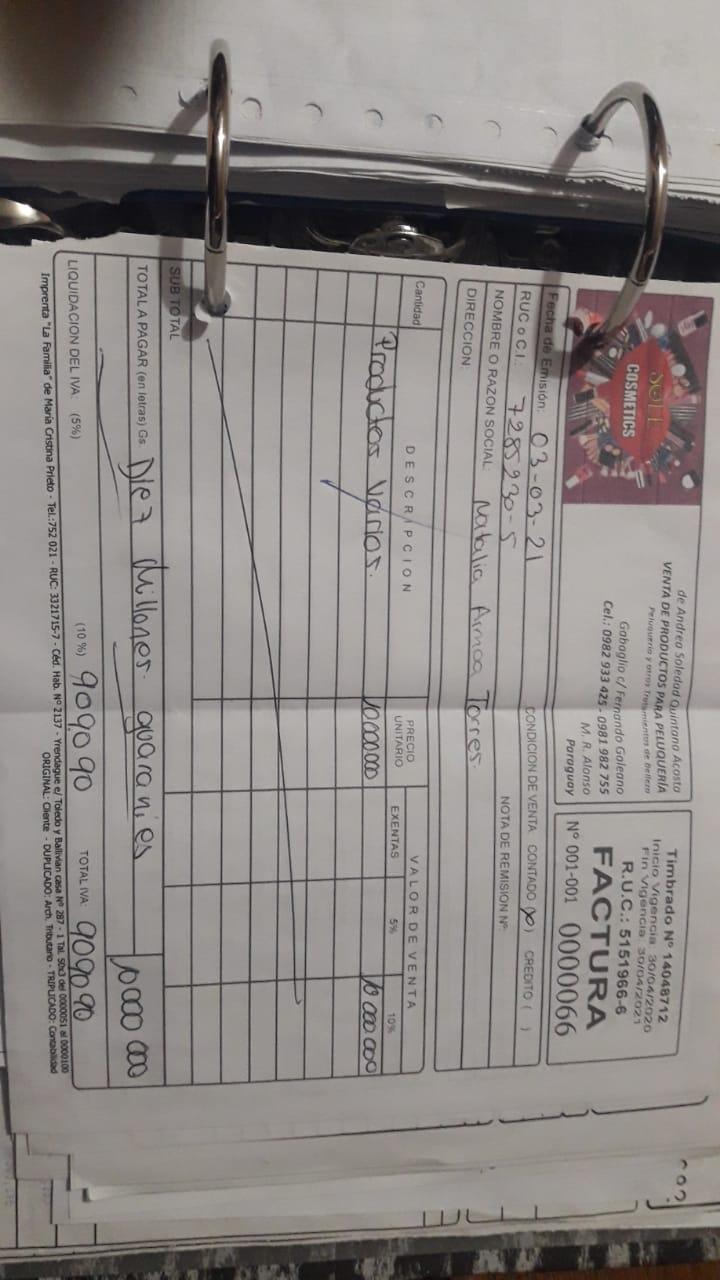 SOLE
COSMETICS
de Andrea Soledad Quintana Acosta
VENTA DE PRODUCTOS PARA PELUQUERÍA
Peluquería y otros Tratamientos de Belleza
Gabaglio c/ Fernando Galeano
Cel.: 0982 933 425 - 0981 982 755
M. R. Alonso
Paraguay
Timbrado N° 14048712
Inicio Vigencia 30/04/2020
Fin Vigencia 30/04/2021
R.U.C.: 5151966-6
FACTURA
N° 001-001 0000066
Fecha de Emisión: 03-03-21 CONDICION DE VENTA CONTADO (x) CREDITO ( )
RUC o C.I.: 7285930-5 NOTA DE REMISION N°:
NOMBRE O RAZON SOCIAL: Natalia Armoa Torres.
DIRECCION:
Cantidad DESCRIPCION PRECIO UNITARIO VALOR DE VENTA
EXENTAS 5% 10%
Productos Varios. 10000000 10 000.000
SUB TOTAL
TOTAL A PAGAR (en letras) Gs. Diez Millones. guaranies 10 000 000
LIQUIDACION DEL IVA: (5%) (10 %) 909.090 TOTAL IVA: 909090
Imprenta "La Familia" de María Cristina Prieto - Tel.:752 021 - RUC: 3321715-7 - Céd. Hab. N° 2137 - Yrendague e/ Toledo y Ballivian casa N° 287 - 1 Tal. 50x3 del 0000051 al 0000100
ORIGINAL: Cliente - DUPLICADO: Arch. Tributario - TRIPLICADO: Contabilidad